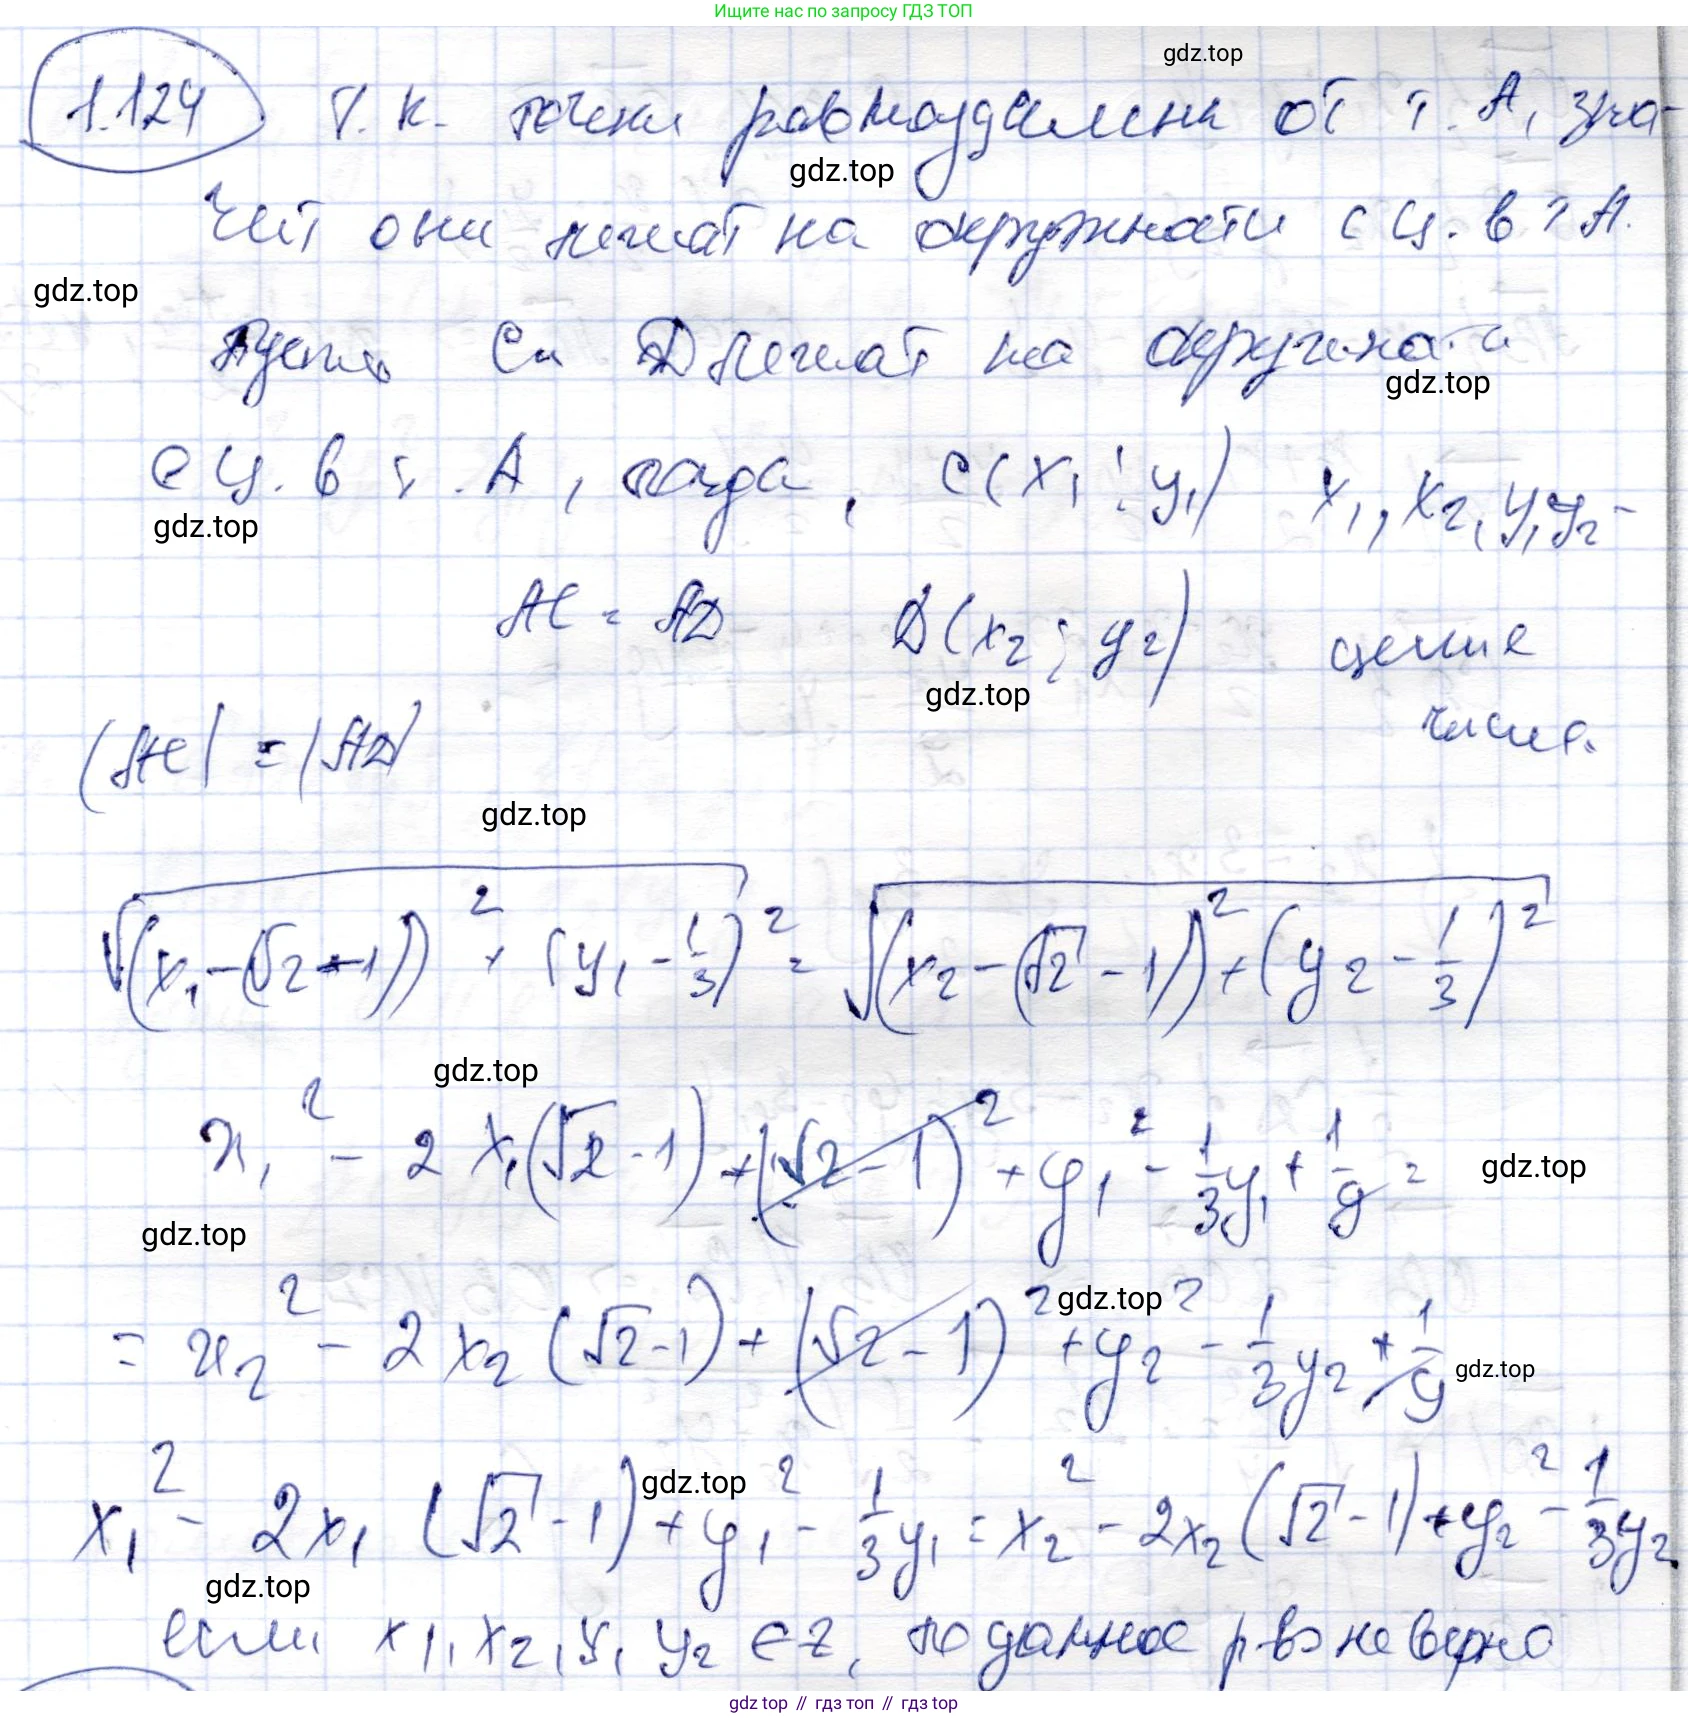 Ищите нас по запросу ГДЗ ТОП
gdz.top
1.124 Т.к. точки равноудалены от т. А, зна-
gdz.top
чит они лежат на окружности с ц. в т А.
gdz.top
Пусть С и D лежат на окружности
gdz.top
с ц. в т. А, тогда, C(x₁; y₁) x₁, x₂, y₁ y₂ -
gdz.top
AC = AD D(x₂; y₂) целые
gdz.top
|AC| = |AD| числа.
gdz.top
√((x₁-(√2-1))² + (y₁-1/3)²) = √((x₂-(√2-1))²+(y₂-1/3)²)
gdz.top
x₁² - 2x₁(√2-1)+(√2-1)² + y₁² - 1/3y₁ + 1/9 =
gdz.top
gdz.top
= x₂² - 2x₂(√2-1)+(√2-1)² + y₂² - 1/3y₂ + 1/9
gdz.top
gdz.top
x₁² - 2x₁(√2-1)+y₁² - 1/3y₁ = x₂² - 2x₂(√2-1)+y₂² - 1/3y₂
gdz.top
gdz.top
если x₁, x₂, y₁ y₂ ∈ Z, то данное р-во неверно
gdz top // гдз топ // гдз top